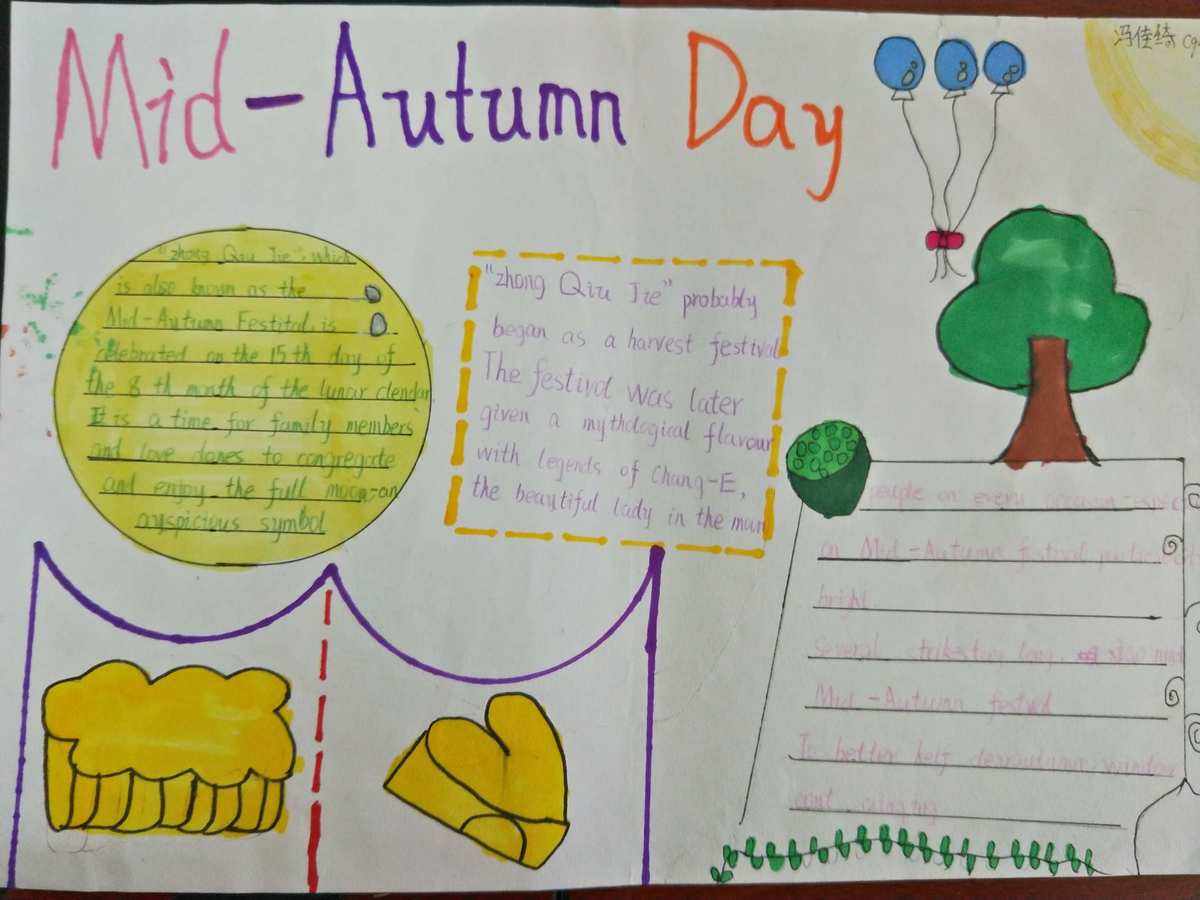 Mid-Autumn Day
冯佳绮
"zhong Qiu Jie", which
is also known as the
Mid-Autumn Festital, is
celebrated on the 15 th day of
the 8 th month of the lunar clendar.
It is a time for family members
and love dones to congregate
and enjoy the full moon-an
auspicious symbol
"zhong Qiu Jie" probably
began as a harvest festival
The festival was later
given a mythological flavour
with legends of Chang-E,
the beautiful lady in the
people on every
on Mid-Autumn festival
bright
several
Mid-Autumn
To better